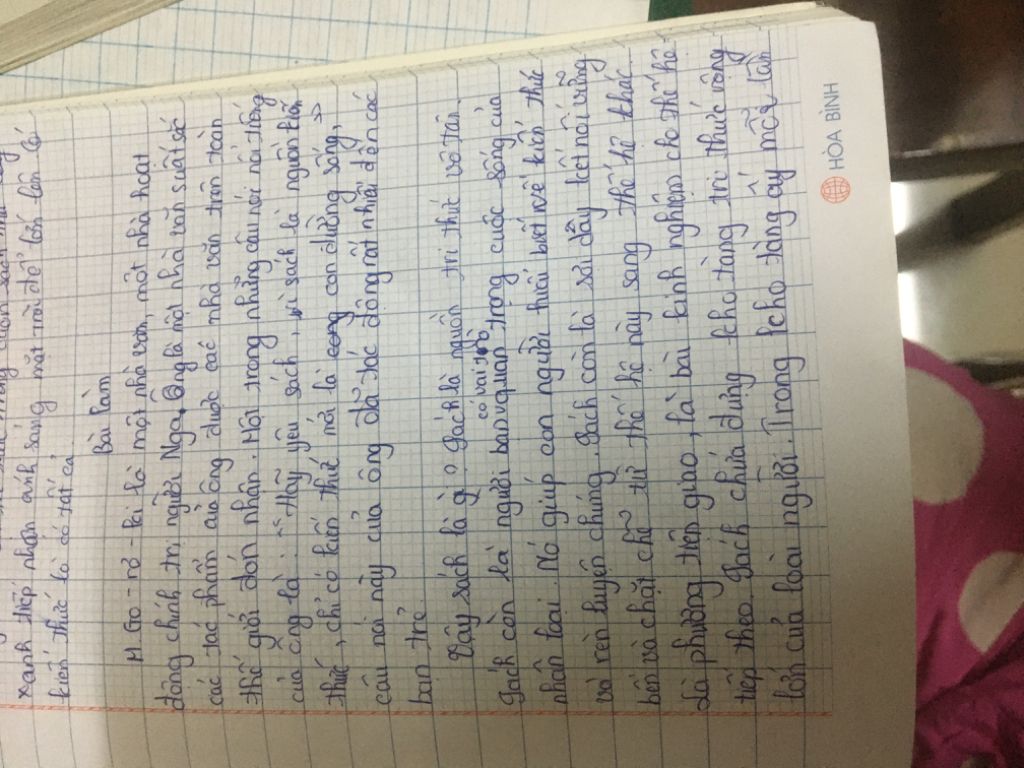 xanh tiếp nhận ánh sáng mặt trời để lớn lên có
kiến thức là có tất cả.
Bài làm
M. Go-rơ-ki là một nhà văn, một nhà hoạt
động chính trị người Nga. Ông là một nhà văn suất sắc
các tác phẩm của ông được các nhà văn trên toàn
thế giới đón nhận. Một trong những câu nói nổi tiếng
của ông là: "Hãy yêu sách, vì sách là nguồn kiến
thức, chỉ có kiến thức mới là con đường sống"
câu nói này của ông đã tác động rất nhiều đến các
bạn trẻ
Vậy sách là gì? Sách là nguồn tri thức vô tận.
Sách còn là người bạn có vai trò quan trọng cuộc sống của
nhân loại. Nó giúp con người hiểu biết về kiến thức
và rèn luyện chúng. Sách còn là sợi dây kết nối vững
bền và chặt chẽ từ thế hệ này sang thế hệ khác.
Là phương tiện giao, là bài kinh nghiệm cho thế hệ
tiếp theo. Sách chứa đựng kho tàng tri thức rộng
lớn của loài người. Trong kho tàng ấy mỗi lần
HÒA BÌNH